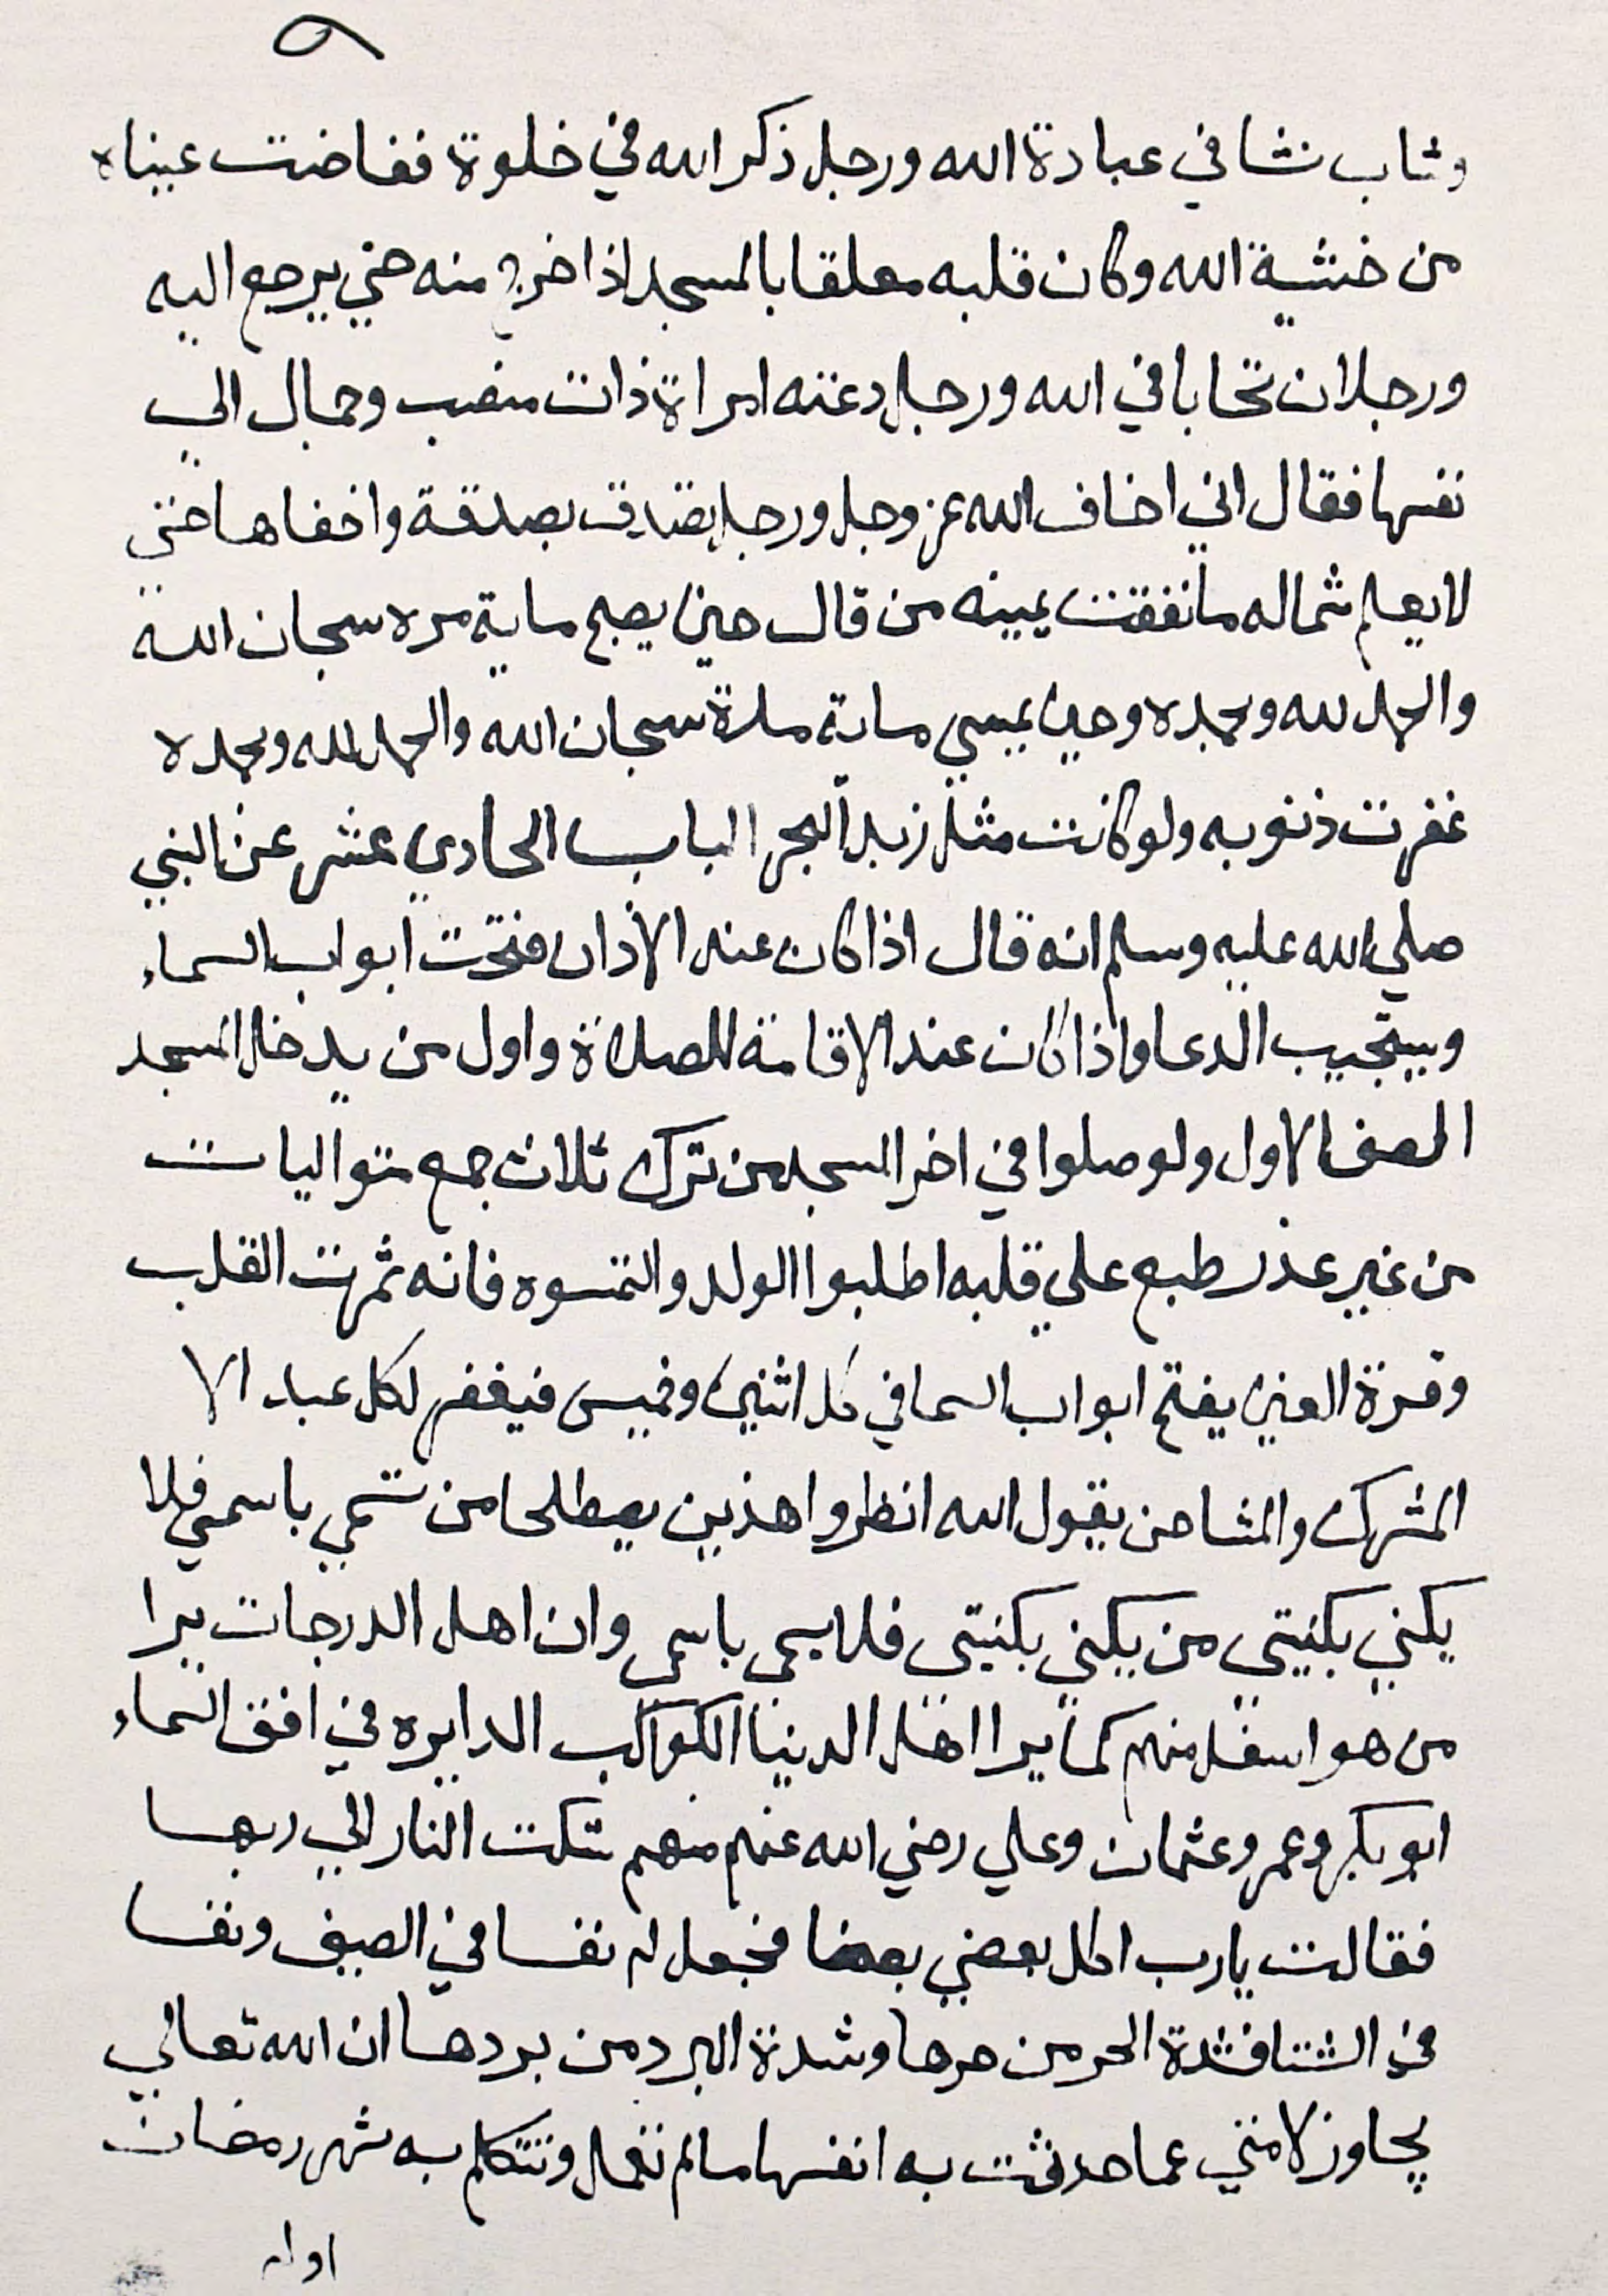 ٩
وشاب نشا في عبادة الله ورجل ذكر الله في خلوة ففاضت عيناه
من خشية الله وكان قلبه معلقا بالمسجد اذا خرج منه حتي يرجع اليه
ورجلان تحابا في الله ورجل دعته امراة ذات منصب وجمال الي
نفسها فقال اني اخاف الله عز وجل ورجل تصدق بصدقة واخفاها حتي
لا يعلم شماله ما نفقت يمينه من قال حين يصبح ماية مره سبحان الله
والحمد لله وبحمده وحين يمسي ماية مرة سبحان الله والحمد لله وبحمده
غفرت ذنوبه ولو كانت مثل زبد البحر الباب الحادي عشر عن النبي
صلي الله عليه وسلم انه قال اذا كان عند الاذان فتحت ابواب السماء
ويستجيب الدعا واذا كان عند الاقامة للصلاة واول من يدخل المسجد
الصف الاول ولو صلوا في اخر المسجد من ترك ثلاث جمع متواليات
من غير عذر طبع علي قلبه اطلبوا الولد والتمسوه فانه ثمرت القلب
وقرة العين يفتح ابواب السما في كل اثنين وخميس فيغفر لكل عبد الا
المشرك والمشاحن يقول الله انظروا هذين يصطلحا من تسمي باسمي فلا
يكني بكنيتي من يكني بكنيتي فلا يسمى باسمى وان اهل الدرجات يرا
من هو اسفل منهم كما يرا اهل الدنيا الكواكب الدايره في افق السماء
ابو بكر وعمر وعثمان وعلي رضي الله عنهم منهم شكت النار الي ربها
فقالت يارب اكل بعضي بعضا فجعل لم نفسا في الصيف ونفسا
في الشتا فشدة الحر من حرها وشدة البرد من بردها ان الله تعالي
يجاوز لامتي عما حدثت به انفسها ما لم تفعل وتتكلم به شهر رمضان
اوله